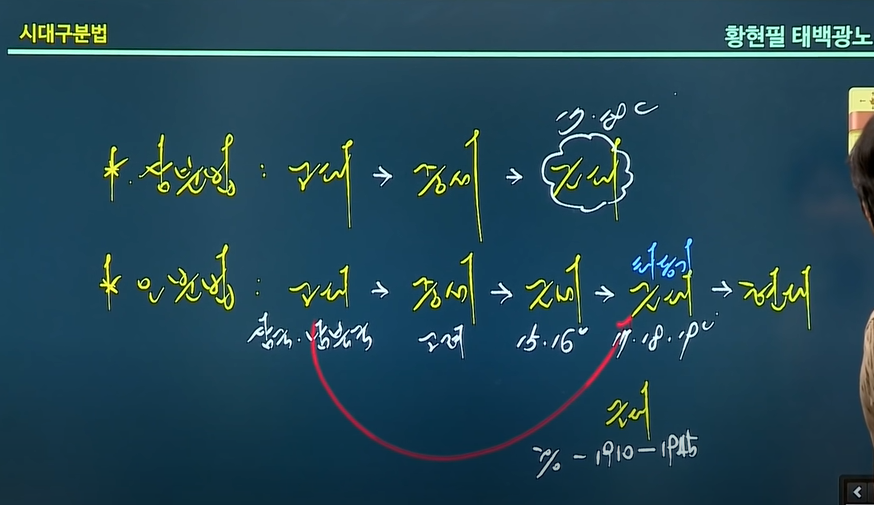 시대구분법
황현필 태백광노
17·18C
* 삼분법 : 고대 → 중세 → 근대
태동기
* 오분법 : 고대 → 중세 → 근세 → 근대 → 현대
삼국·남북국 고려 15·16C 17·18·19C
근대
1910 - 1945